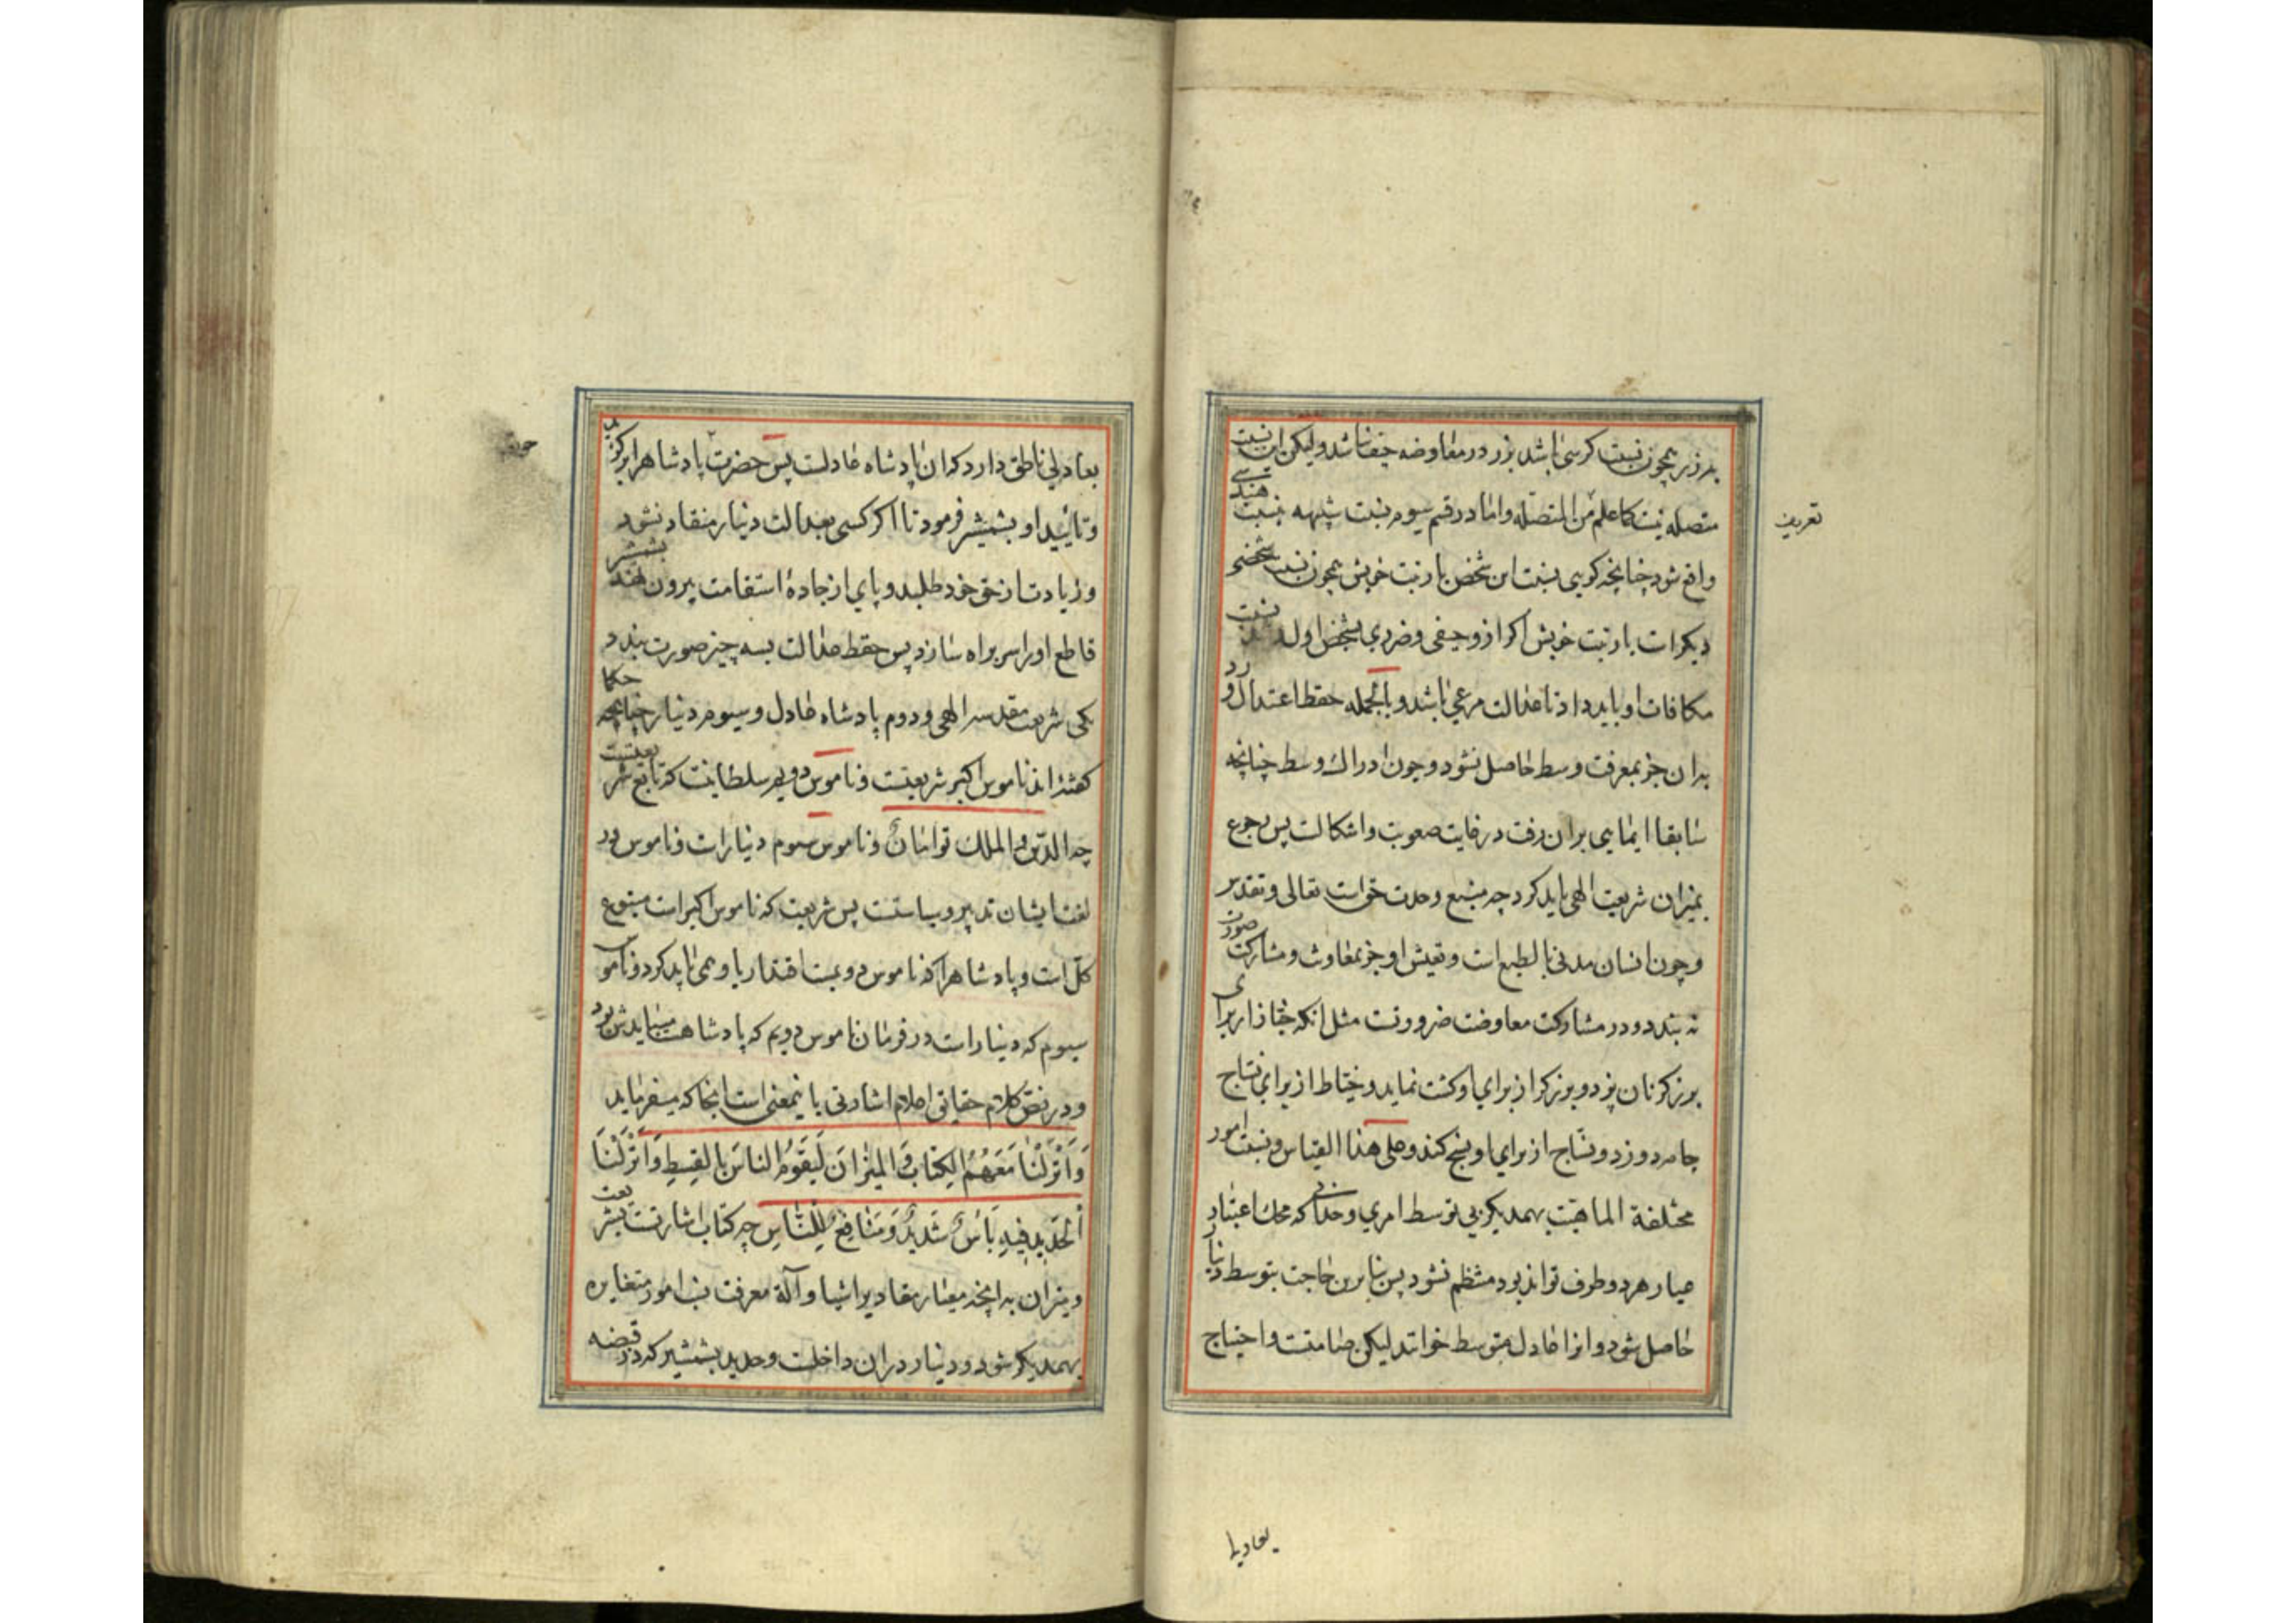 بدین زر همچون نسبت کرسی باشد بزر در معاوضه حیف باشد ولیکن این نسبت
متصله نیست کما علم من المتصله و اما در قسم سیوم نسبت شبیهه بنسبت هندسی
واقع شود چنانچه کوییم نسبت این شخص با رتبت خویش همچون نسبت شخصی
دیکرست با رتبت خویش اکر ازو حیفی و ضرری بشخص اول رسد
مکافات او باید داد تا عدالت مرعی باشد و بالجمله حفظ اعتدال و رد
بدان جز بمعرفت وسط حاصل نشود و چون ادراک وسط چنانچه
سابقا ایمایی بران رفت در غایت صعوبت و اشکالست پس رجوع
بمیزان شریعت الهی باید کرد چه منبع وحدت حق است تعالی و تقدس
و چون انسان مدنی بالطبع است و تعیش او جز بمعاونت و مشارکت صورت
نه بندد و در مشارکت معاوضت ضرورتست مثل انکه خباز از برای
برزکر نان پزد و برزکر از برای او کشت نماید و خیاط از برای نساج
جامه دوزد و نساج از برای او نسج کند و علی هذا القیاس و نسبت امور
مختلفة الماهیت بهمدیکر بی توسط امری وحدانی که محک اعتبار
عیار هر دو طرف تواند بود منتظم نشود پس بنابرین حاجت بتوسط دینار
حاصل شود و انرا عادل متوسط خوانند لیکن صامتست و احتیاج
تعریف
بعادلی ناطق دارد که ان پادشاه عادلست پس حضرت پادشاه را برکزید
و تایید او بشمشیر فرمود تا اکر کسی بعدالت دینار منقاد نشود
و زیادت از حق خود طلبد و پای از جادهٔ استقامت بیرون نهد بشمشیر
قاطع او را سر براه سازد پس حفظ عدالت بسه چیز صورت بندد
یکی شریعت مقدسه الهی و دوم پادشاه عادل و سیوم دینار چنانچه حکما
کفته اند ناموس اکبر شریعتست و ناموس دویم سلطانیست که تابع شریعتست
چه الدین و الملک توامان و ناموس سیوم دینارست و ناموس در
لغت ایشان تدبیر و سیاستست پس شریعت که ناموس اکبرست متبوع
کل است و پادشاه را که ناموس دویمست اقتدا باو می باید کرد و ناموس
سیوم که دینارست در فرمان ناموس دویم که پادشاهست می باید
و در نص کلام حقایق اعلام اشارتی باینمعنی است انجا که میفرماید
وَاَنْزَلْنَا مَعَهُمُ الکِتَابَ وَ المِیْزَانَ لِیَقُوْمَ النَاسُ بِالقِسْطِ وَاَنْزَلْنَا
اَلْحَدِیْدَ فِیْهِ بَاْسٌ شَدِیْدٌ وَ مَنَافِعُ لِلْنَّاسِ چه کتاب اشارتست بشریعت
و میزان بدانچه معیار مقادیر اشیا و آلة معرفت نسب امور متغایره
بهمدیکر شود و دینار دران داخلست و حدید بشمشیر که در قبضه
بعادلی